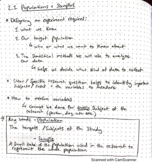 2.2 Populations & Samples
• Designing an experiment requires:
1. What we know
2. Our target population
↳ who or what we want to know about
3. The statistical method we will use to analyze
our data
↳ helps us decide what kind of data to collect
• Clear / Specific research question helps to identify
subjects / and the variables to measure
• How to measure variables
↳ Cannot be done for every subject of the
research
Key words - Population:
The targets / Subjects of the study
Sample:
A small subset of the population used in the research to
represent the entire population
Scanned with CamScanner